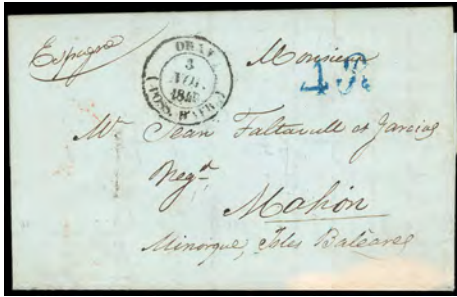 Espagne
ORAN
3
184
(POSS. D'AFR.)
Monsieur
4 R
Mr. Jean Faltavull et Jancias
Negt.
Mahón
Minorque, Isles Baléares